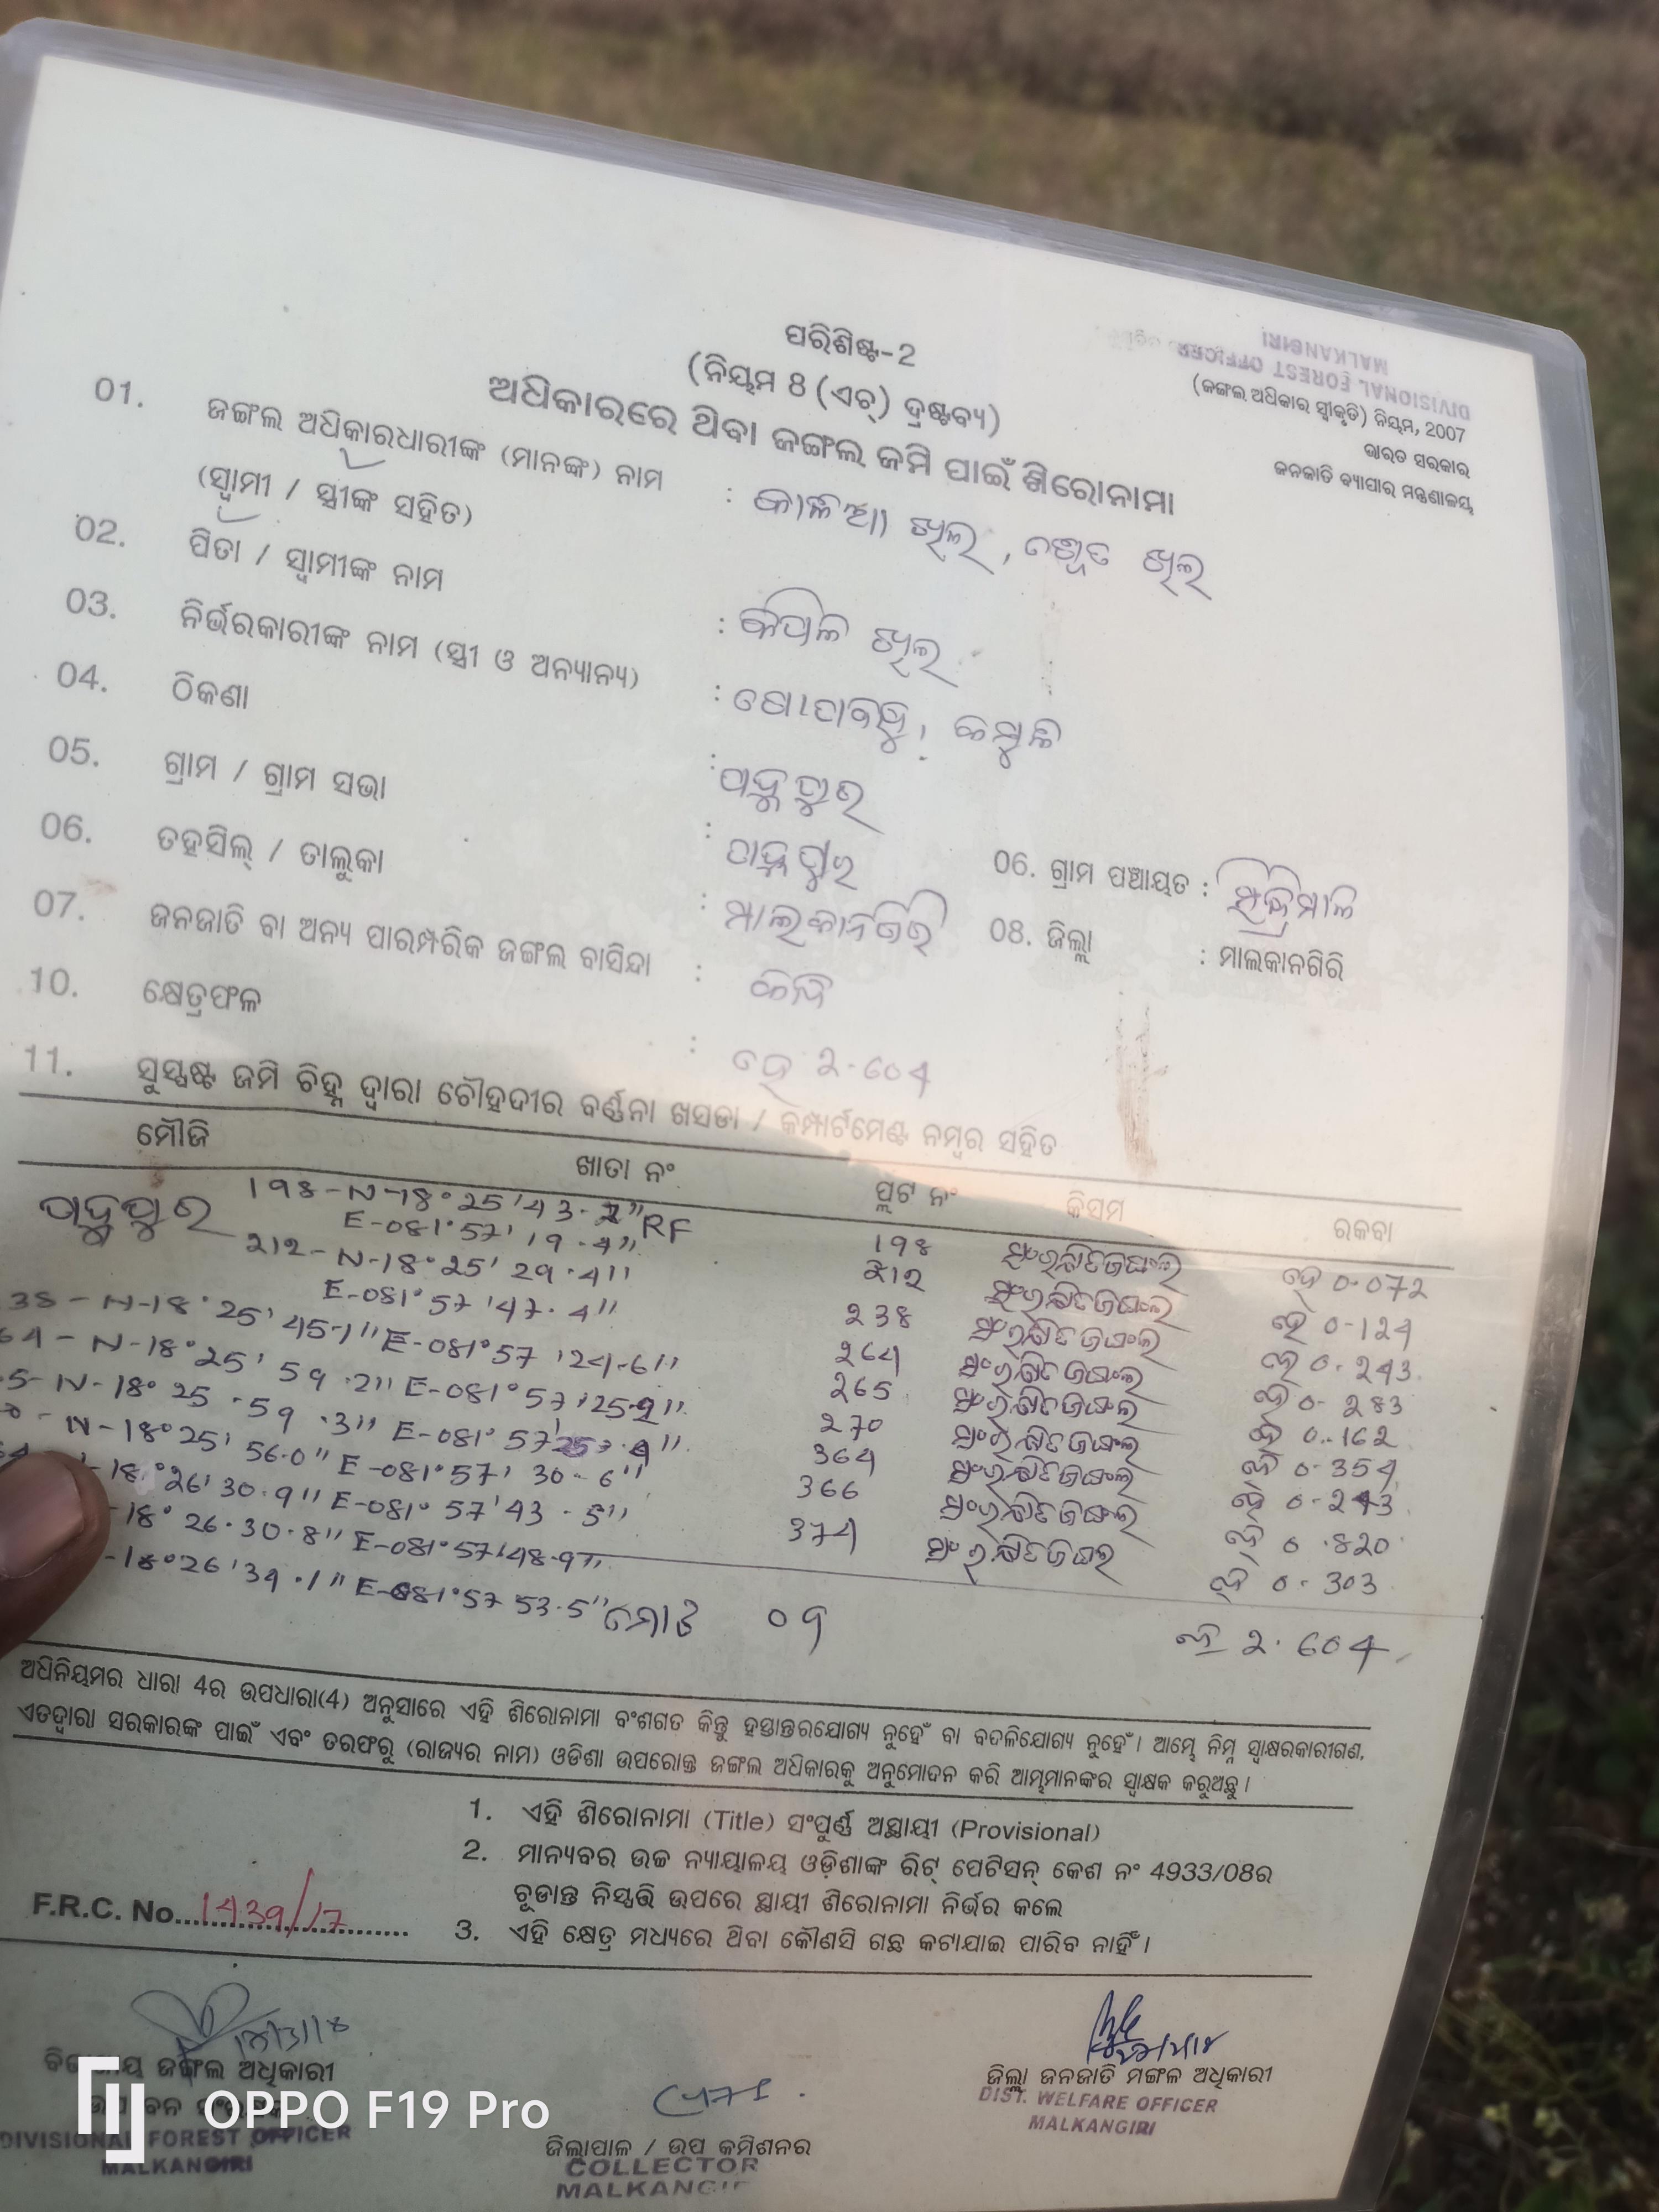 ପରିଶିଷ୍ଟ-2
(ନିୟମ 8 (ଏଚ୍) ଦ୍ରଷ୍ଟବ୍ୟ)
ଅଧିକାରରେ ଥିବା ଜଙ୍ଗଲ ଜମି ପାଇଁ ଶିରୋନାମା
DIVISIONAL FOREST OFFICER
MALKANGIRI
(ଜଙ୍ଗଲ ଅଧିକାର ସ୍ୱୀକୃତି) ନିୟମ, 2007
ଭାରତ ସରକାର
ଜନଜାତି ବ୍ୟାପାର ମନ୍ତ୍ରଣାଳୟ
01. ଜଙ୍ଗଲ ଅଧିକାରଧାରୀଙ୍କ (ମାନଙ୍କ) ନାମ
(ସ୍ୱାମୀ / ସ୍ତ୍ରୀଙ୍କ ସହିତ) : ଖିଲ, ଖିଲ
02. ପିତା / ସ୍ୱାମୀଙ୍କ ନାମ : ଖିଲ
03. ନିର୍ଭରକାରୀଙ୍କ ନାମ (ସ୍ତ୍ରୀ ଓ ଅନ୍ୟାନ୍ୟ) :
04. ଠିକଣା :
05. ଗ୍ରାମ / ଗ୍ରାମ ସଭା : 06. ଗ୍ରାମ ପଞ୍ଚାୟତ :
06. ତହସିଲ୍ / ତାଲୁକା : ମାଲକାନଗିରି 08. ଜିଲ୍ଲା : ମାଲକାନଗିରି
07. ଜନଜାତି ବା ଅନ୍ୟ ପାରମ୍ପରିକ ଜଙ୍ଗଲ ବାସିନ୍ଦା :
10. କ୍ଷେତ୍ରଫଳ : ହେ 2.604
11. ସୁସ୍ପଷ୍ଟ ଜମି ଚିହ୍ନ ଦ୍ୱାରା ଚୌହଦୀର ବର୍ଣ୍ଣନା ଖସଡା / କମ୍ପାର୍ଟମେଣ୍ଟ ନମ୍ବର ସହିତ
ମୌଜି ଖାତା ନଂ ପ୍ଲଟ ନଂ କିସମ ରକବା
198-N-18°25'43.2" RF 198 ସଂରକ୍ଷିତ ଜଙ୍ଗଲ ହେ 0.072
E-081°57'19.4"
212-N-18°25'29.4" 212 ସଂରକ୍ଷିତ ଜଙ୍ଗଲ ହେ 0-124
E-081°57'47.4"
38-N-18°25'45-1" E-081°57'24-6" 238 ସଂରକ୍ଷିତ ଜଙ୍ଗଲ ହେ 0.243
64-N-18°25'59.2" E-081°57'25-2" 264 ସଂରକ୍ଷିତ ଜଙ୍ଗଲ ହେ 0-283
5-N-18°25-59.3" E-081°57' 265 ସଂରକ୍ଷିତ ଜଙ୍ଗଲ ହେ 0.162
N-18°25'56.0" E-081°57'30-6" 270 ସଂରକ୍ଷିତ ଜଙ୍ଗଲ ହେ 0-354
18°26'30.9" E-081°57'43.5" 364 ସଂରକ୍ଷିତ ଜଙ୍ଗଲ ହେ 0-243
-18°26.30.8" E-081°57'48-9" 366 ସଂରକ୍ଷିତ ଜଙ୍ଗଲ ହେ 0.820
-18°26'39.1" E-081°57 53.5" 374 ସଂରକ୍ଷିତ ଜଙ୍ଗଲ ହେ 0-303
ମୋଟ ୦୯ ହେ 2.604
ଅଧିନିୟମର ଧାରା 4ର ଉପଧାରା(4) ଅନୁସାରେ ଏହି ଶିରୋନାମା ବଂଶଗତ କିନ୍ତୁ ହସ୍ତାନ୍ତରଯୋଗ୍ୟ ନୁହେଁ ବା ବଦଳିଯୋଗ୍ୟ ନୁହେଁ। ଆମ୍ଭେ ନିମ୍ନ ସ୍ୱାକ୍ଷରକାରୀଗଣ,
ଏତଦ୍ୱାରା ସରକାରଙ୍କ ପାଇଁ ଏବଂ ତରଫରୁ (ରାଜ୍ୟର ନାମ) ଓଡିଶା ଉପରୋକ୍ତ ଜଙ୍ଗଲ ଅଧିକାରକୁ ଅନୁମୋଦନ କରି ଆମ୍ଭମାନଙ୍କର ସ୍ୱାକ୍ଷକ କରୁଅଛୁ।
1. ଏହି ଶିରୋନାମା (Title) ସଂପୁର୍ଣ୍ଣ ଅସ୍ଥାୟୀ (Provisional)
2. ମାନ୍ୟବର ଉଚ୍ଚ ନ୍ୟାୟାଳୟ ଓଡ଼ିଶାଙ୍କ ରିଟ୍ ପେଟିସନ୍ କେଶ ନଂ 4933/08ର
ଚୂଡାନ୍ତ ନିସ୍ପତ୍ତି ଉପରେ ସ୍ଥାୟୀ ଶିରୋନାମା ନିର୍ଭର କଲେ
3. ଏହି କ୍ଷେତ୍ର ମଧ୍ୟରେ ଥିବା କୌଣସି ଗଛ କଟାଯାଇ ପାରିବ ନାହିଁ।
F.R.C. No. 1439/17
ଜଙ୍ଗଲ ଅଧିକାରୀ
DIVISIONAL FOREST OFFICER
MALKANGIRI
ଜିଲ୍ଲାପାଳ / ଉପ କମିଶନର
COLLECTOR
MALKANGIR
ଜିଲ୍ଲା ଜନଜାତି ମଙ୍ଗଳ ଅଧିକାରୀ
DIST. WELFARE OFFICER
MALKANGIRI
OPPO F19 Pro